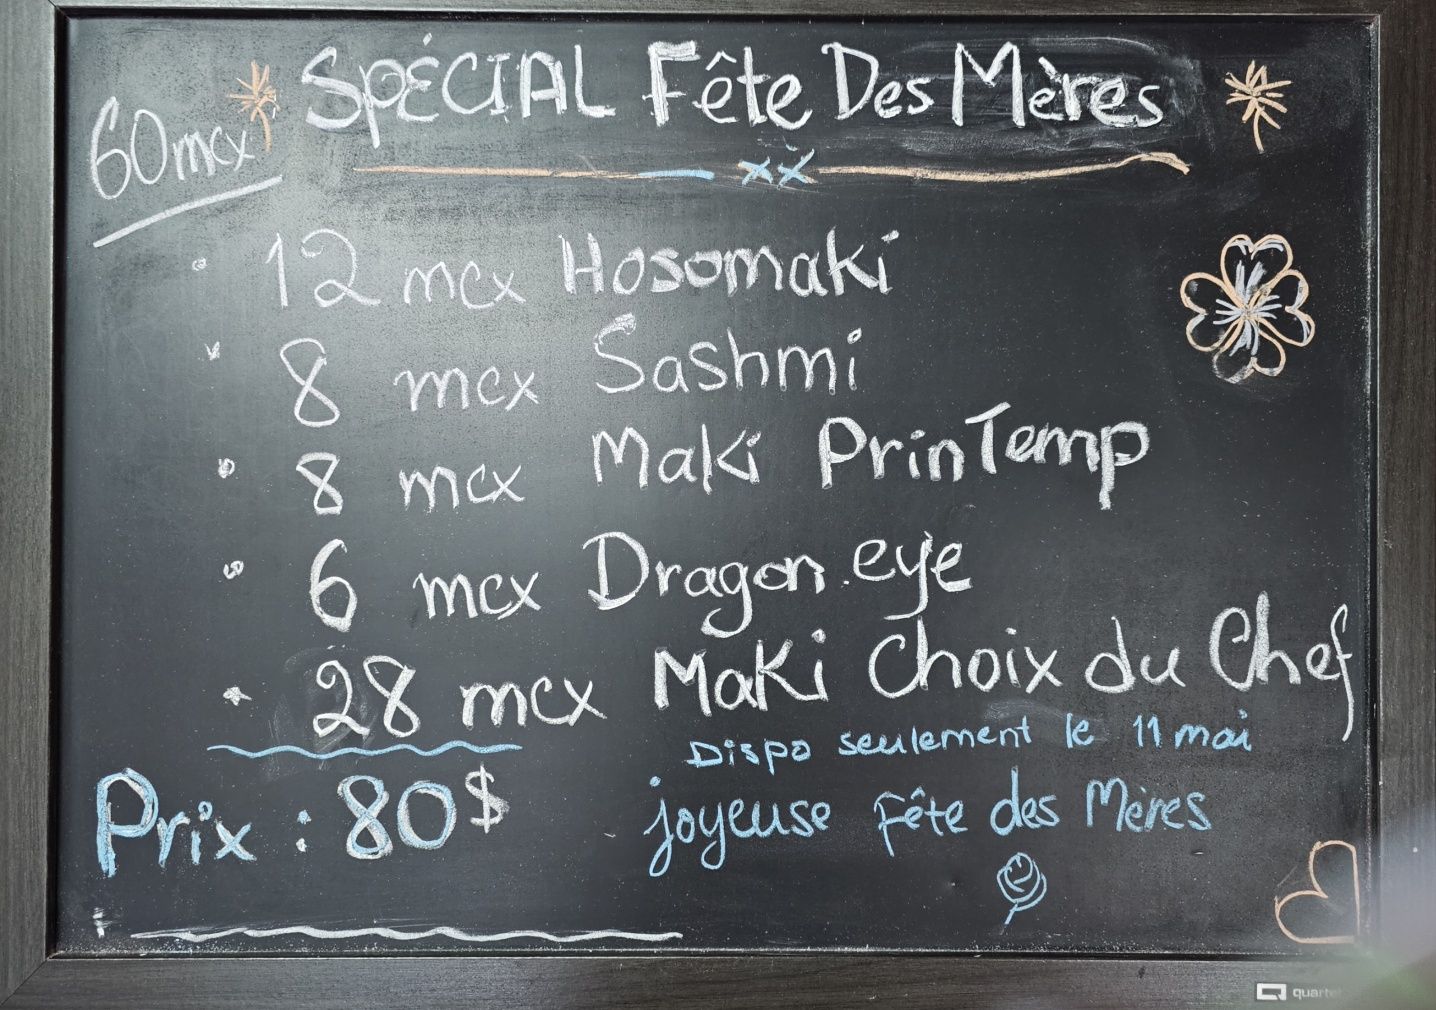 SPÉCIAL Fête Des Mères
60mcx
12 mcx Hosomaki
8 mcx Sashmi
8 mcx Maki PrinTemp
6 mcx Dragon eye
28 mcx Maki Choix du Chef
Dispo seulement le 11 mai
Prix : 80$
joyeuse Fête des Mères
quartet